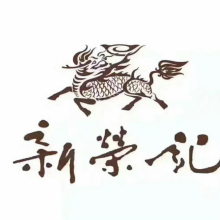 新榮記